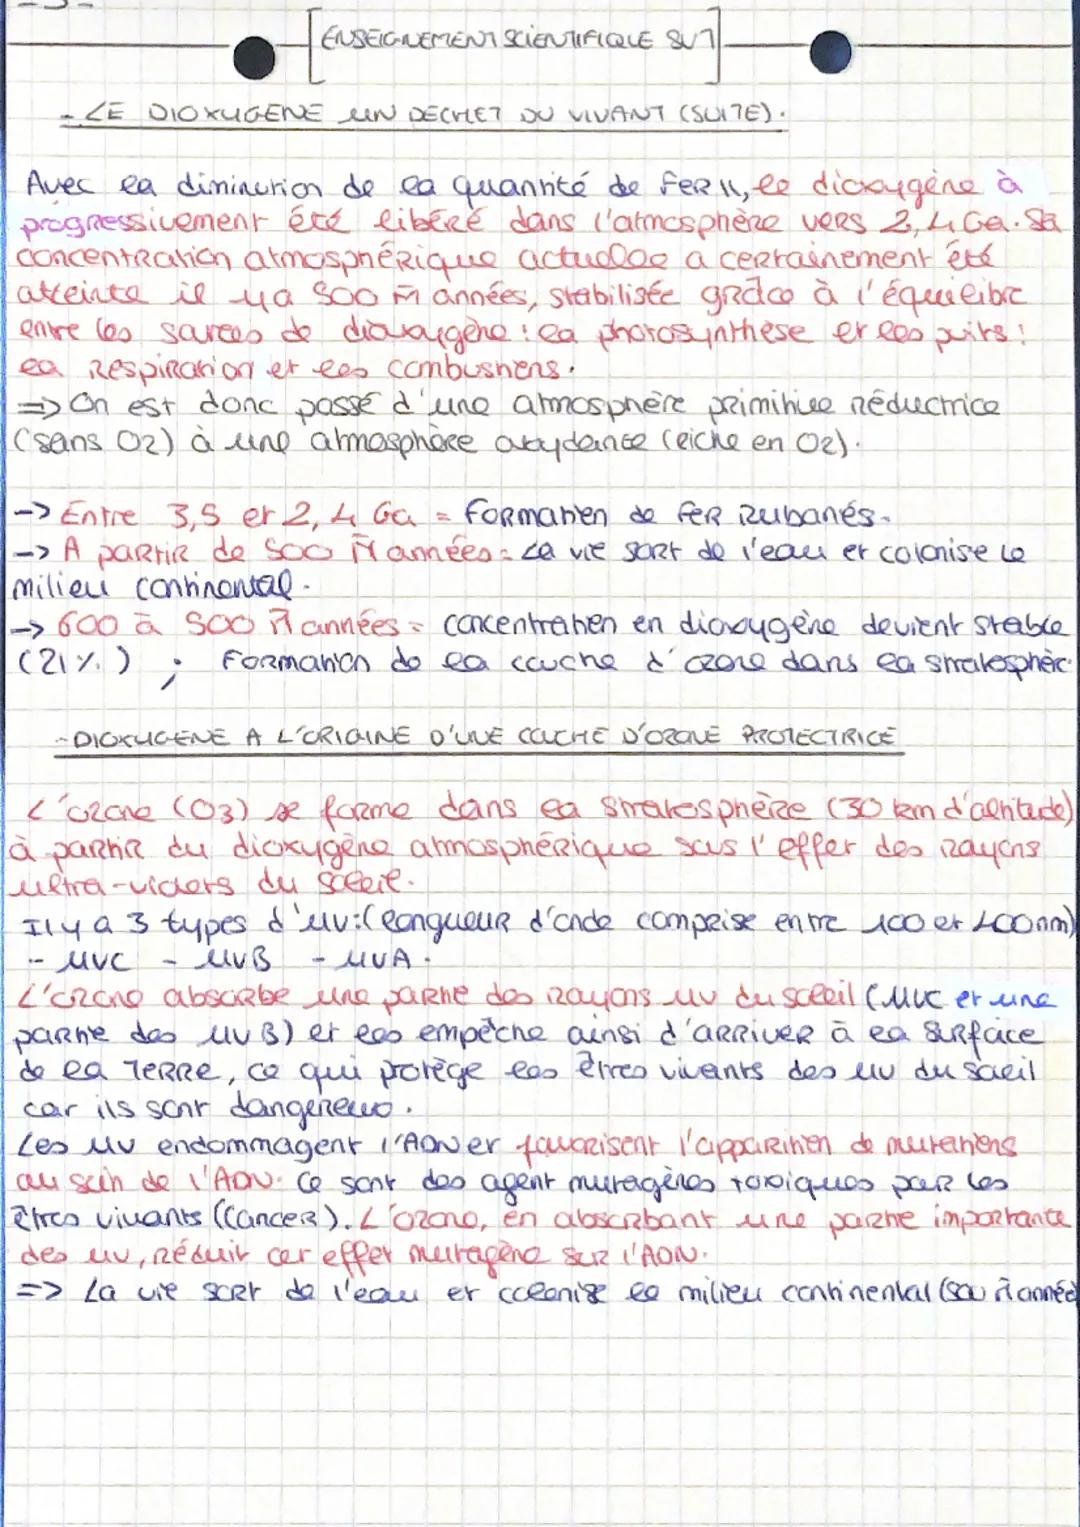 [ENSEIGNEMENT SCIENTIFIQUE SVT]
- LE DIOXYGENE UN DECHET DU VIVANT (SUITE).
Avec la diminution de la quantité de FER II, le dioxygène à
progressivement été libéré dans l'atmosphère vers 2,4 Ga. Sa
concentration atmosphérique actuelle a certainement été
atteinte il y a 500 M années, stabilisée grâce à l'équilibre
entre les sources de dioxygène : la photosynthèse et les puits :
la respiration et les combustions.
=> On est donc passé d'une atmosphère primitive réductrice
(sans O2) à une atmosphère oxydante (riche en O2).
-> Entre 3,5 et 2,4 Ga = Formation de FER Rubanés.
-> A partir de 500 M années = La vie sort de l'eau et colonise le
milieu continental.
-> 600 à 500 M années = concentration en dioxygène devient stable
(21%) ; Formation de la couche d'ozone dans la stratosphère
- DIOXYGENE A L'ORIGINE D'UNE COUCHE D'OZONE PROTECTRICE
L'ozone (O3) se forme dans la stratosphère (30 km d'altitude)
à partir du dioxygène atmosphérique sous l'effet des rayons
ultra-violets du soleil.
Il y a 3 types d'UV : (longueur d'onde comprise entre 100 et 400nm)
- UVC - UVB - UVA.
L'ozone absorbe une partie des rayons UV du soleil (UVC et une
partie des UVB) et les empêche ainsi d'arriver à la surface
de la TERRE, ce qui protège les êtres vivants des UV du soleil
car ils sont dangereux.
Les UV endommagent l'ADN et favorisent l'apparition de mutations
au sein de l'ADN. Ce sont des agent mutagènes toxiques par les
êtres vivants ((cancer). L'ozone, en absorbant une partie importante
des UV, réduit cet effet mutagène sur l'ADN.
=> La vie sort de l'eau et colonise le milieu continental (500 M année